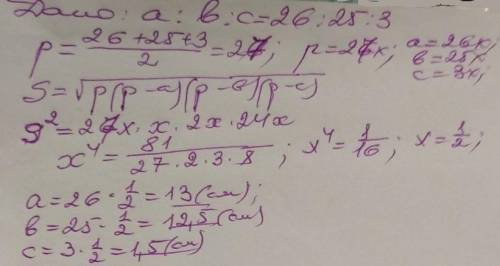 Дано: a : в : c = 26 : 25 : 3
p = (26 + 25 + 3)/2 = 27; p = 27x; a = 26x;
в = 25x
c = 3x;
S = √p(p-a)(p-в)(p-c)
9² = 27x · x · 2x · 24x
x⁴ = 81/(27 · 2 · 3 · 8); x⁴ = 1/16; x = 1/2;
a = 26 · 1/2 = 13 (см);
в = 25 · 1/2 = 12,5 (см)
c = 3 · 1/2 = 1,5 (см)